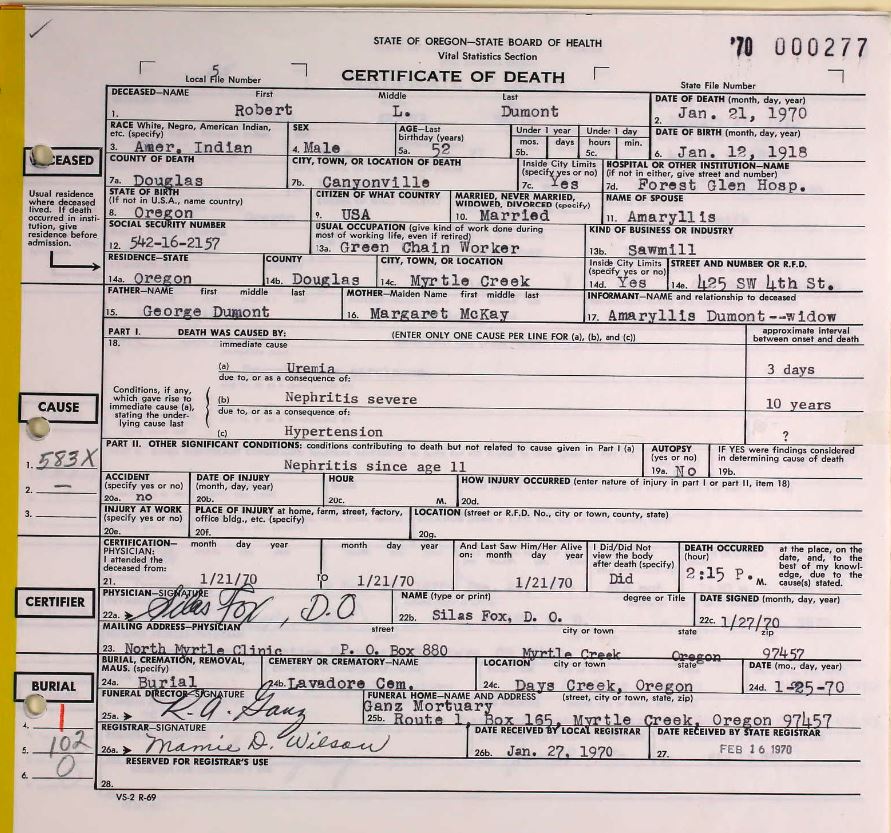 STATE OF OREGON—STATE BOARD OF HEALTH
Vital Statistics Section
'70 000277
5
Local File Number
CERTIFICATE OF DEATH
State File Number
DECEASED—NAME First Middle Last
1. Robert L. Dumont
DATE OF DEATH (month, day, year)
2. Jan. 21, 1970
RACE White, Negro, American Indian, etc. (specify)
3. Amer. Indian
SEX
4. Male
AGE—Last birthday (years)
5a. 52
Under 1 year
mos. days
5b.
Under 1 day
hours min.
5c.
DATE OF BIRTH (month, day, year)
6. Jan. 12, 1918
DECEASED
COUNTY OF DEATH
7a. Douglas
CITY, TOWN, OR LOCATION OF DEATH
7b. Canyonville
Inside City Limits (specify yes or no)
7c. Yes
HOSPITAL OR OTHER INSTITUTION—NAME
(if not in either, give street and number)
7d. Forest Glen Hosp.
Usual residence where deceased lived. If death occurred in institution, give residence before admission.
STATE OF BIRTH
(If not in U.S.A., name country)
8. Oregon
CITIZEN OF WHAT COUNTRY
9. USA
MARRIED, NEVER MARRIED, WIDOWED, DIVORCED (specify)
10. Married
NAME OF SPOUSE
11. Amaryllis
SOCIAL SECURITY NUMBER
12. 542-16-2157
USUAL OCCUPATION (give kind of work done during most of working life, even if retired)
13a. Green Chain Worker
KIND OF BUSINESS OR INDUSTRY
13b. Sawmill
RESIDENCE—STATE
14a. Oregon
COUNTY
14b. Douglas
CITY, TOWN, OR LOCATION
14c. Myrtle Creek
Inside City Limits (specify yes or no)
14d. Yes
STREET AND NUMBER OR R.F.D.
14e. 425 SW 4th St.
FATHER—NAME first middle last
15. George Dumont
MOTHER—Maiden Name first middle last
16. Margaret McKay
INFORMANT—NAME and relationship to deceased
17. Amaryllis Dumont--widow
PART I. DEATH WAS CAUSED BY: (ENTER ONLY ONE CAUSE PER LINE FOR (a), (b), and (c))
approximate interval between onset and death
18. immediate cause
(a) Uremia 3 days
due to, or as a consequence of:
Conditions, if any, which gave rise to immediate cause (a), stating the underlying cause last
(b) Nephritis severe 10 years
due to, or as a consequence of:
(c) Hypertension ?
CAUSE
1. 583X
2. —
3.
PART II. OTHER SIGNIFICANT CONDITIONS: conditions contributing to death but not related to cause given in Part I (a)
Nephritis since age 11
AUTOPSY (yes or no)
19a. No
IF YES were findings considered in determining cause of death
19b.
ACCIDENT (specify yes or no)
20a. no
DATE OF INJURY (month, day, year)
20b.
HOUR
20c. M.
HOW INJURY OCCURRED (enter nature of injury in part I or part II, item 18)
20d.
INJURY AT WORK (specify yes or no)
20e.
PLACE OF INJURY at home, farm, street, factory, office bldg., etc. (specify)
20f.
LOCATION (street or R.F.D. No., city or town, county, state)
20g.
CERTIFICATION—PHYSICIAN:
I attended the deceased from:
21.
month day year
1/21/70
to
month day year
1/21/70
And Last Saw Him/Her Alive on: month day year
1/21/70
I Did/Did Not view the body after death (specify)
Did
DEATH OCCURRED (hour)
2:15 P. M.
at the place, on the date, and, to the best of my knowledge, due to the cause(s) stated.
CERTIFIER
PHYSICIAN—SIGNATURE
22a. Silas Fox, D.O
NAME (type or print) degree or Title
22b. Silas Fox, D. O.
DATE SIGNED (month, day, year)
22c. 1/27/70
MAILING ADDRESS—PHYSICIAN street city or town state zip
23. North Myrtle Clinic P. O. Box 880 Myrtle Creek Oregon 97457
BURIAL
BURIAL, CREMATION, REMOVAL, MAUS. (specify)
24a. Burial
CEMETERY OR CREMATORY—NAME
24b. Lavadore Cem.
LOCATION city or town state
24c. Days Creek, Oregon
DATE (mo., day, year)
24d. 1-25-70
FUNERAL DIRECTOR—SIGNATURE
25a. R. A. Ganz
FUNERAL HOME—NAME AND ADDRESS (street, city or town, state, zip)
Ganz Mortuary
25b. Route 1, Box 165, Myrtle Creek, Oregon 97457
4. 1
5. 102
6. 0
REGISTRAR—SIGNATURE
26a. Mamie D. Wilson
DATE RECEIVED BY LOCAL REGISTRAR
26b. Jan. 27, 1970
DATE RECEIVED BY STATE REGISTRAR
27. FEB 16 1970
RESERVED FOR REGISTRAR'S USE
28.
VS-2 R-69